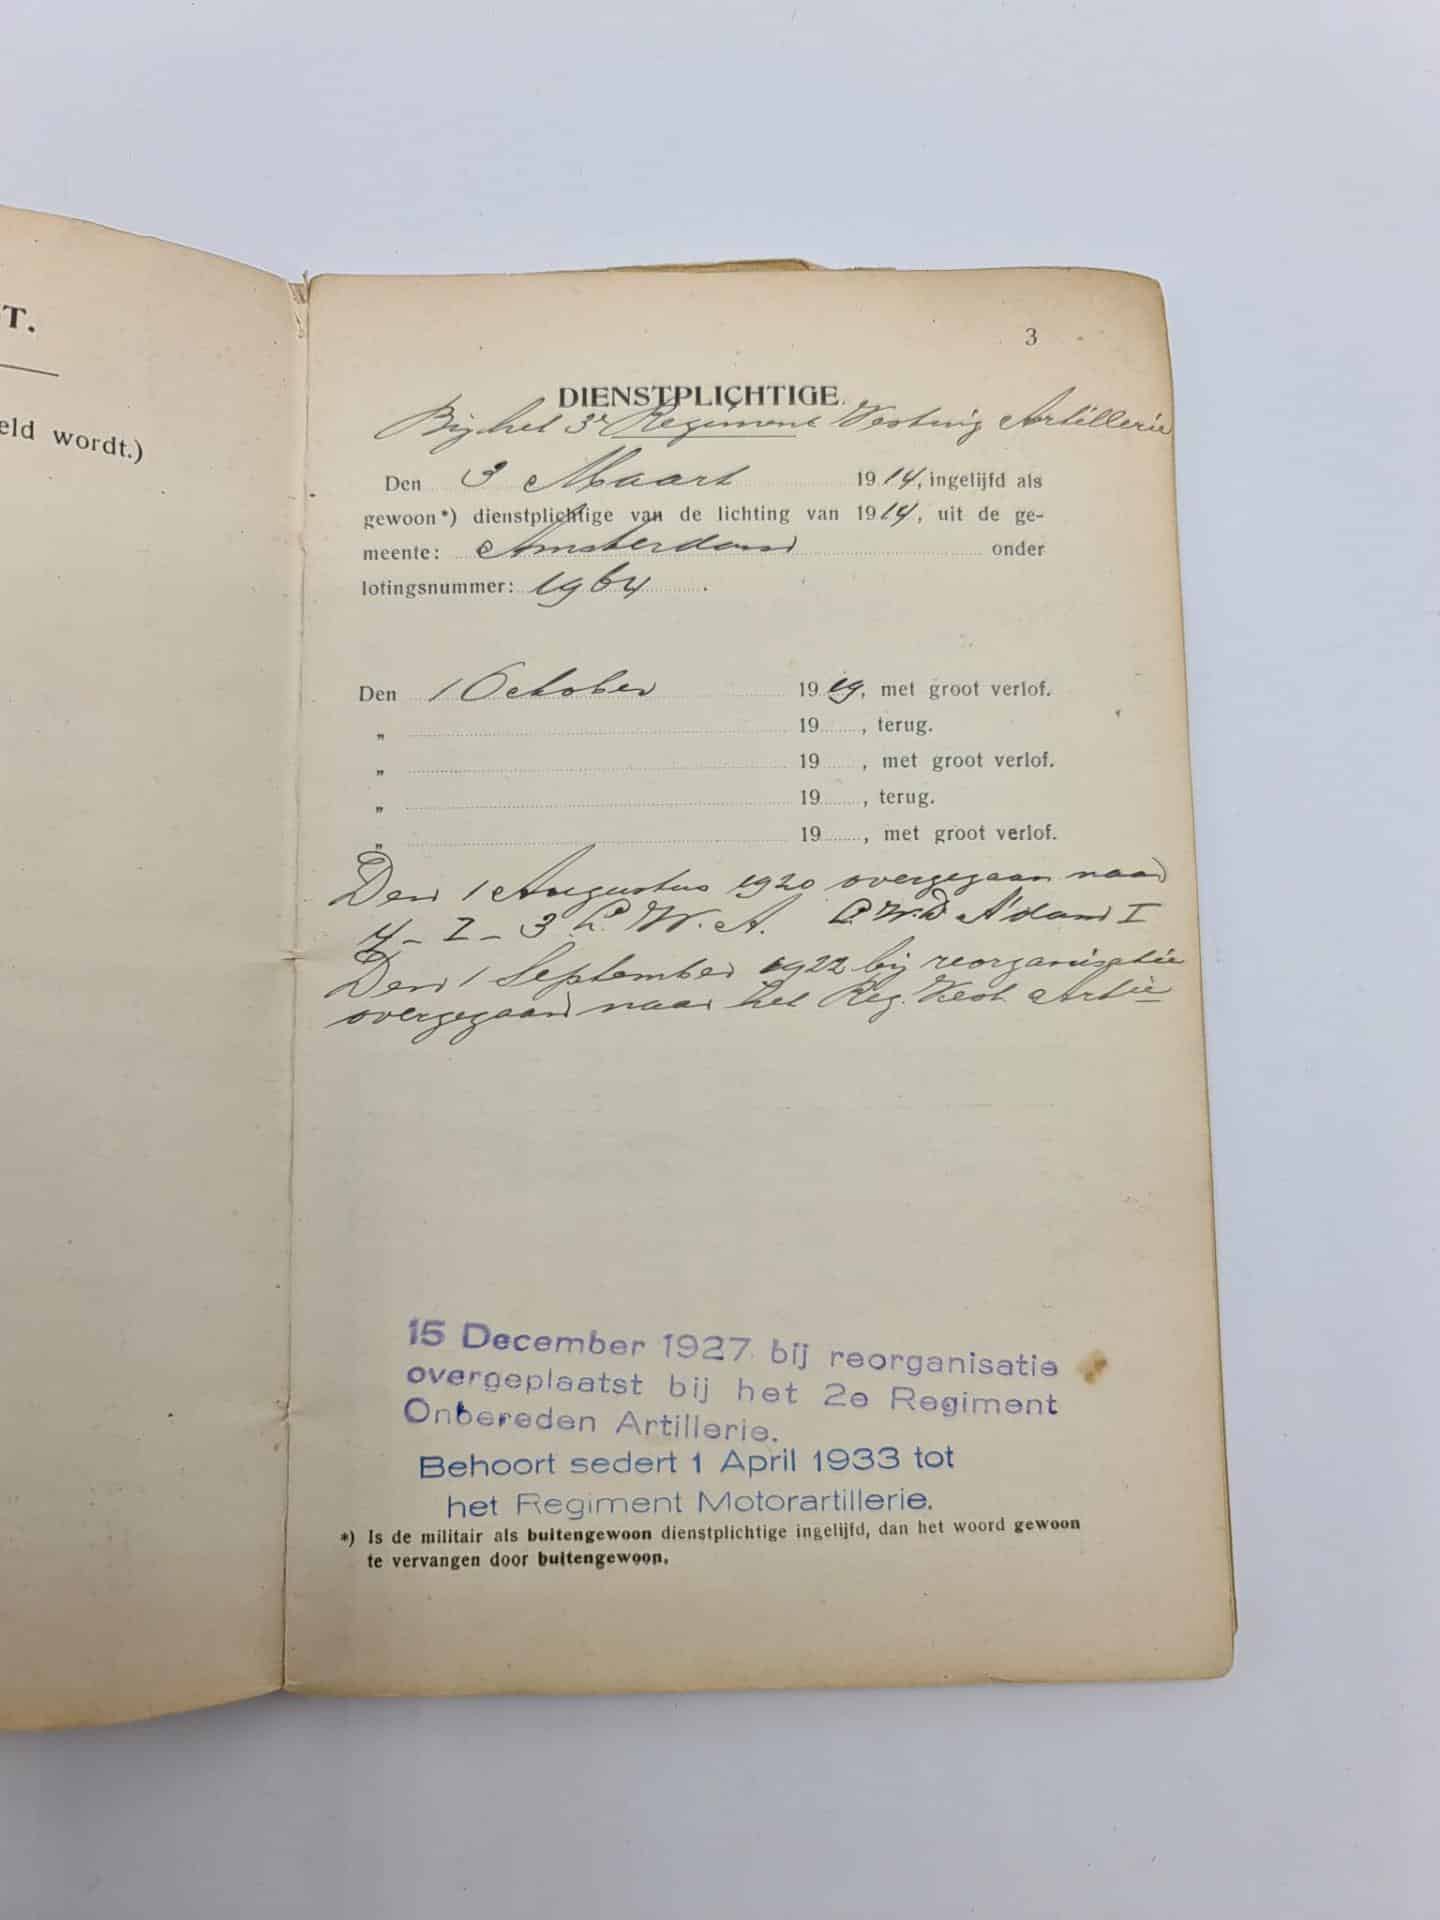 T.
eld wordt.)
3
DIENSTPLICHTIGE.
Bij het 3e Regiment Vesting Artillerie
Den 3 Maart 1914, ingelijfd als
gewoon*) dienstplichtige van de lichting van 1914, uit de ge-
meente: Amsterdam onder
lotingsnummer: 1964.
Den 1 October 1919, met groot verlof.
„ 19 , terug.
„ 19 , met groot verlof.
„ 19 , terug.
„ 19 , met groot verlof.
Den 1 Augustus 1920 overgegaan naar
I - 3 L. W. A. A'dam I
Den 1 September 1922 bij reorganisatie
overgegaan naar het Reg. Vest. Artie
15 December 1927 bij reorganisatie
overgeplaatst bij het 2e Regiment
Onbereden Artillerie.
Behoort sedert 1 April 1933 tot
het Regiment Motorartillerie.
*) Is de militair als buitengewoon dienstplichtige ingelijfd, dan het woord gewoon
te vervangen door buitengewoon.